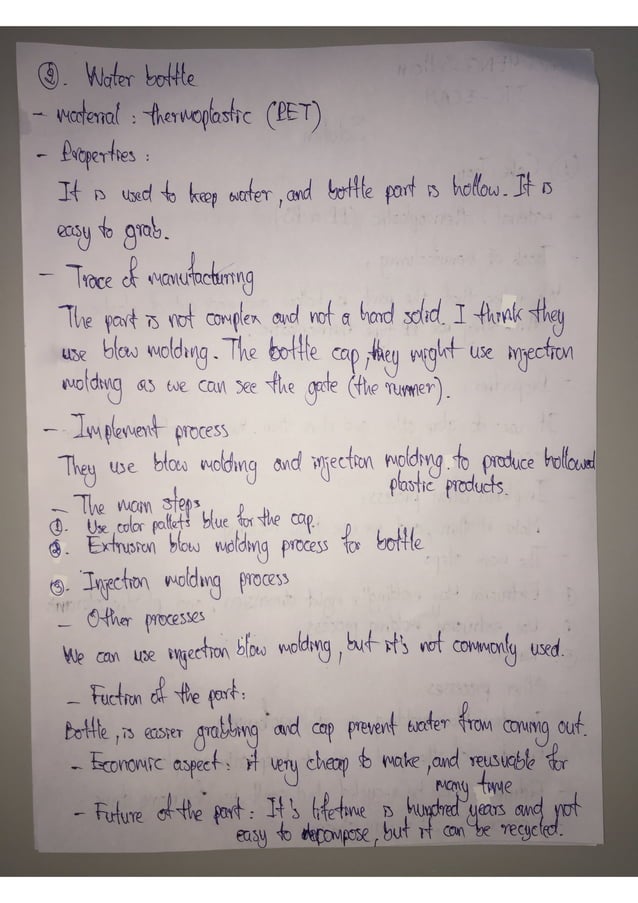 ②. Water bottle
- material : thermoplastic (PET)
- Properties :
It is used to keep water, and bottle part is hollow. It is
easy to grab.
- Trace of manufacturing
The part is not complex and not a hard solid. I think they
use blow molding. The bottle cap, they might use injection
molding as we can see the gate (the runner).
- Implement process
They use blow molding and injection molding. to produce hollowed
plastic products.
- The main steps
①. Use color pallets blue for the cap.
②. Extrusion blow molding process for bottle
③. Injection molding process
- Other processes
We can use injection blow molding, but it's not commonly used.
- Fuction of the part :
Bottle, is easier grabbing and cap prevent water from coming out.
- Economic aspect : it very cheap to make, and reusuable for
many time
- Future of the part : It's lifetime is hundred years and not
easy to decompose, but it can be recycled.